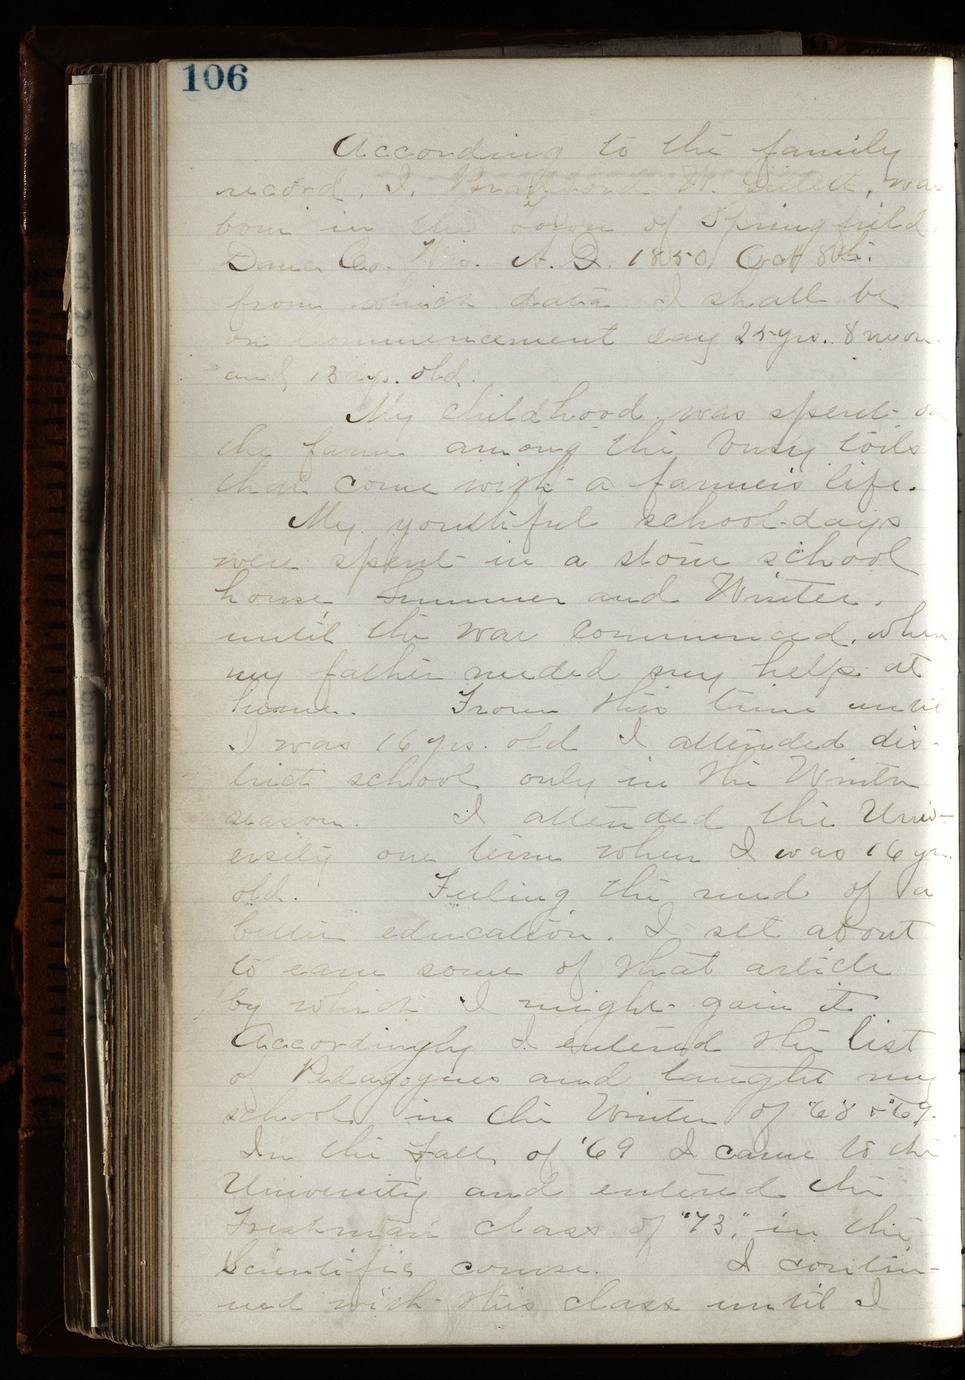 106
According to the family
record, I, W. was
born in the town of Springfield,
Dane Co. Wis. A. D. 1850 Oct 8th.
from which date I shall be
on commencement day 25 yrs. 8 mon.
and 13 dys. old.
My childhood was spent on
the farm among the busy toils
that come with a farmer's life.
My youthful school-days
were spent in a stone school
house Summer and Winter,
until the war commenced, when
my father needed my help at
home. From this time until
I was 16 yrs. old I attended dis-
trict school only in the Winter
season. I attended the Univ-
ersity one term when I was 16 yrs.
old. Feeling the need of a
better education, I set about
to earn some of that article
by which I might gain it.
Accordingly I entered the list
of Pedagogues and taught my
school in the Winter of '68 & '69.
In the Fall of '69 I came to the
University and entered the
Freshman class of "73," in the
Scientific course. I contin-
ued with this class until I